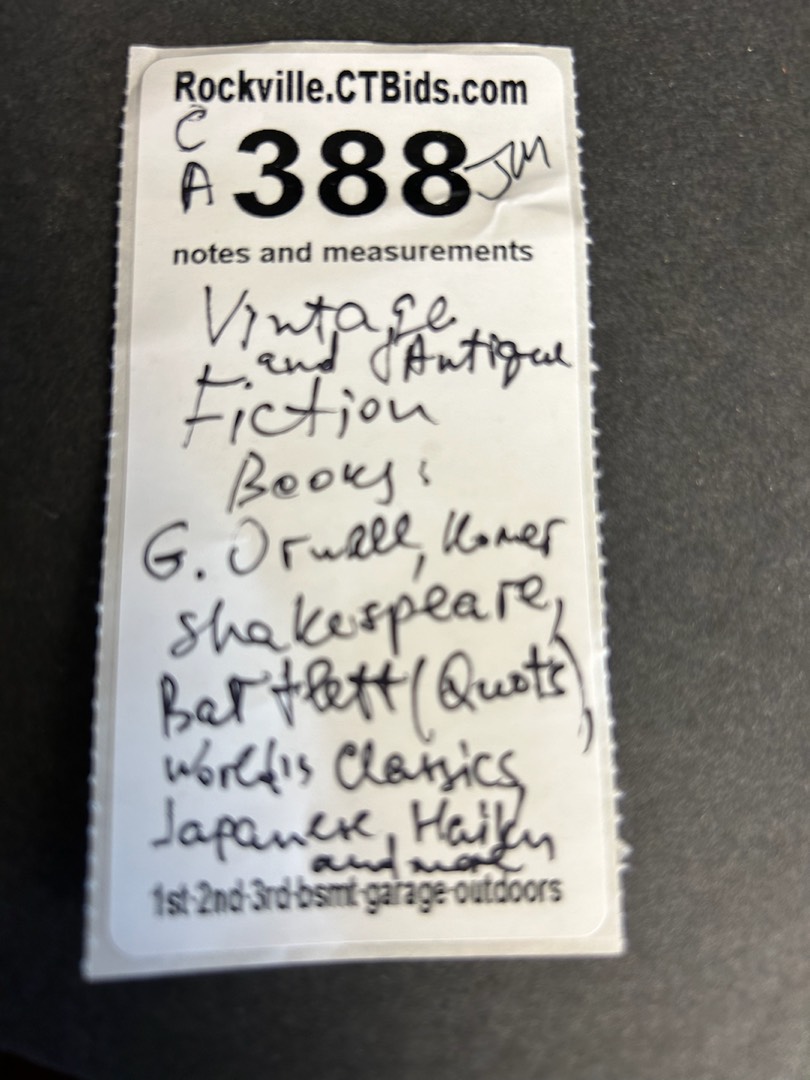 Rockville.CTBids.com
C
A 388 JM
notes and measurements
Vintage
and Antique
Fiction
Books:
G. Orwell, Homer
Shakespeare,
Bartlett (Quots),
World's Classics
Japanese Haiku
and more
1st-2nd-3rd-bsmt-garage-outdoors